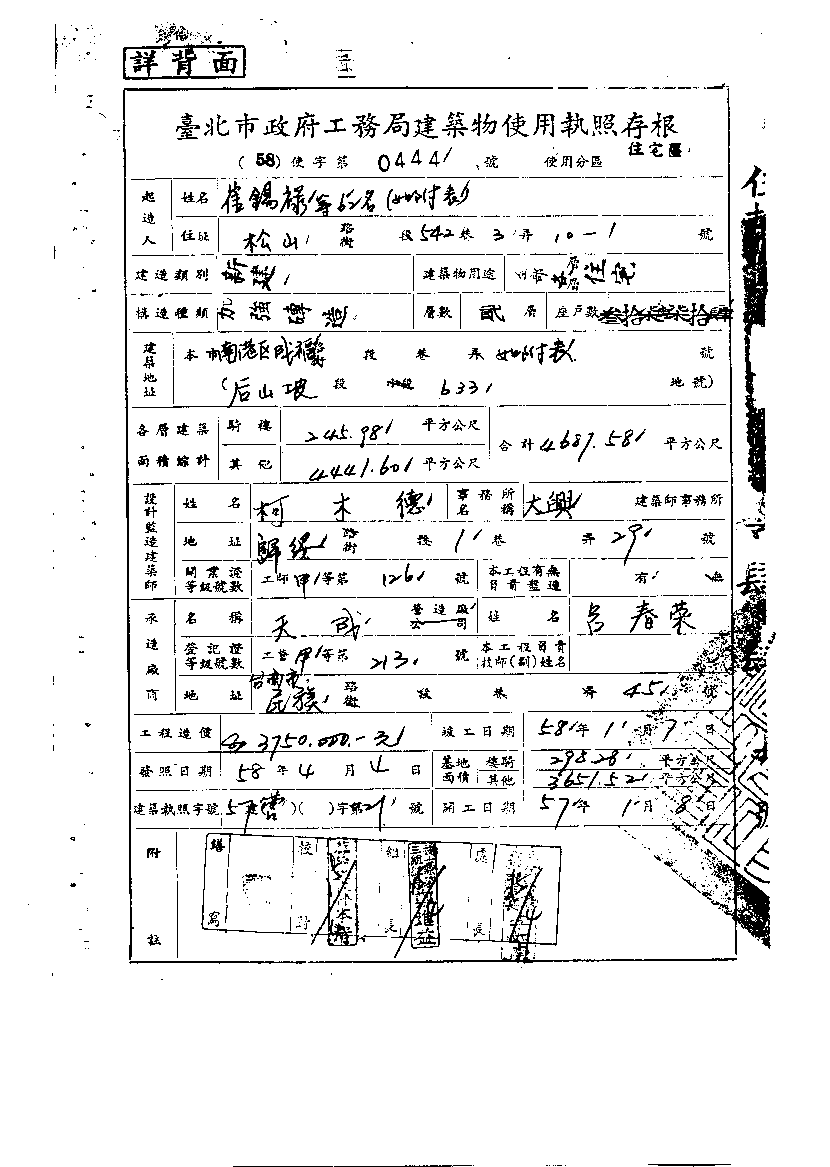 詳背面
臺北市政府工務局建築物使用執照存根
(58)使字第 0444 號 使用分區 住宅區
起造人 姓名 崔錫祿等 名(如付表)
住址 松山 路街 段 542 巷 3 弄 10-1 號
建造類別 新建 建築物用途 住宅
構造種類 加強磚造 層數 貳 層 座戶數 叁拾柒
建築地址 本市南港區成福 段 巷 弄 如付表 號
(后山坡 段 小段 633 地號)
各層建築面積綜計 騎樓 245.98 平方公尺 合計 4687.58 平方公尺
其他 4441.60 平方公尺
設計監造建築師 姓名 柯木德 事務所名稱 大興 建築師事務所
地址 歸綏 路街 段 1 巷 弄 29 號
開業證等級號數 工師甲等第 1261 號 本工程有無負責監造 有 無
承造廠商 名稱 天成 營造廠公司 姓名 呂春榮
登記證等級號數 工營甲等第 213 號 本工程負責技師(副)姓名
地址 台南市民族 路街 段 巷 弄 45 號
工程造價 3750.000.-元 竣工日期 58年1月7日
發照日期 58年4月4日 基地面積 樓騎 298.28 平方公尺
其他 3651.52 平方公尺
建築執照字號 57 (營)( )字第21 號 開工日期 57年1月8日
附註 繕寫 校對 組長 處長